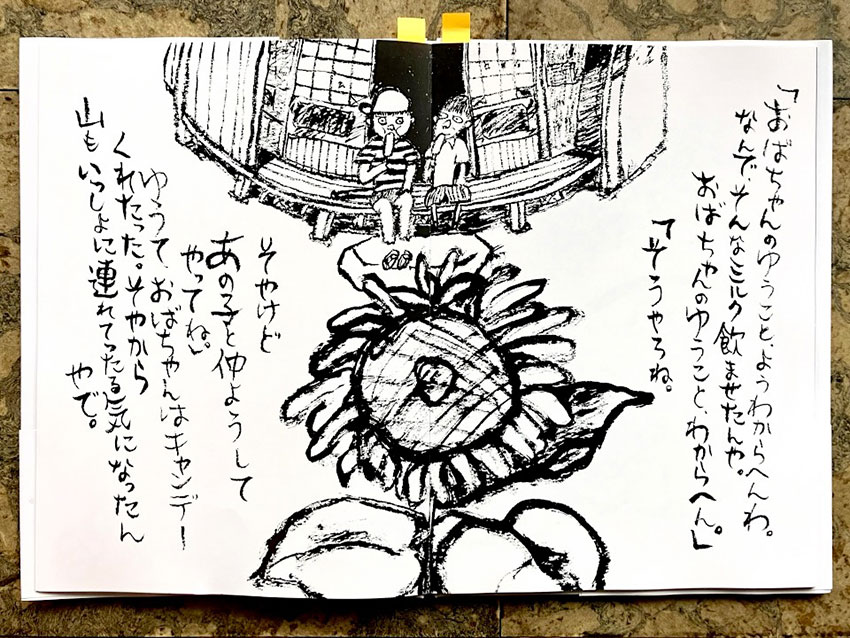 「おばちゃんのゆうこと、ようわからへんわ。
なんでそんなミルク飲ませたんや。
おばちゃんのゆうこと、わからへん。」
「そうやろね。
そやけど
あの子と仲ようして
やってね」
ゆうて、おばちゃんはキャンデー
くれたった。そやから
山もいっしょに連れてったる気になったん
やで。